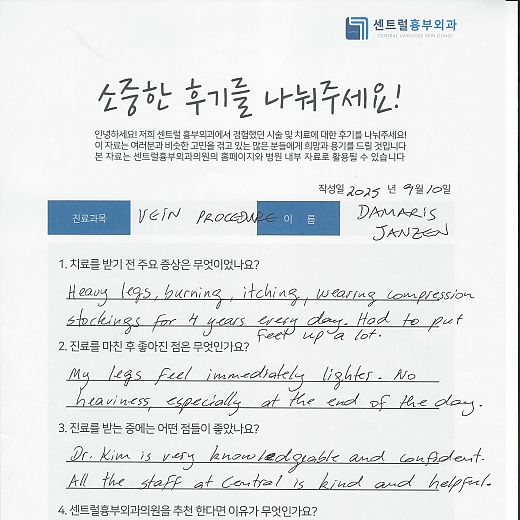 센트럴흉부외과
CENTRAL VARICOSE VEIN CLINIC
소중한 후기를 나눠주세요!
안녕하세요! 저희 센트럴 흉부외과에서 경험했던 시술 및 치료에 대한 후기를 나눠주세요!
이 자료는 여러분과 비슷한 고민을 겪고 있는 많은 분들에게 희망과 용기를 드릴 것입니다
본 자료는 센트럴흉부외과의원의 홈페이지와 병원 내부 자료로 활용될 수 있습니다
작성일 2025 년 9월 10일
진료과목 VEIN PROCEDURE 이 름 DAMARIS
JANZEN
1. 치료를 받기 전 주요 증상은 무엇이었나요?
Heavy legs, burning, itching, wearing compression
stockings for 4 years every day. Had to put
feet up a lot.
2. 진료를 마친 후 좋아진 점은 무엇인가요?
My legs feel immediately lighter. No
heaviness, especially at the end of the day.
3. 치료를 받는 중에는 어떤 점들이 좋았나요?
Dr. Kim is very knowledgeable and confident.
All the staff at Central is kind and helpful.
4. 센트럴흉부외과의원을 추천 한다면 이유가 무엇인가요?